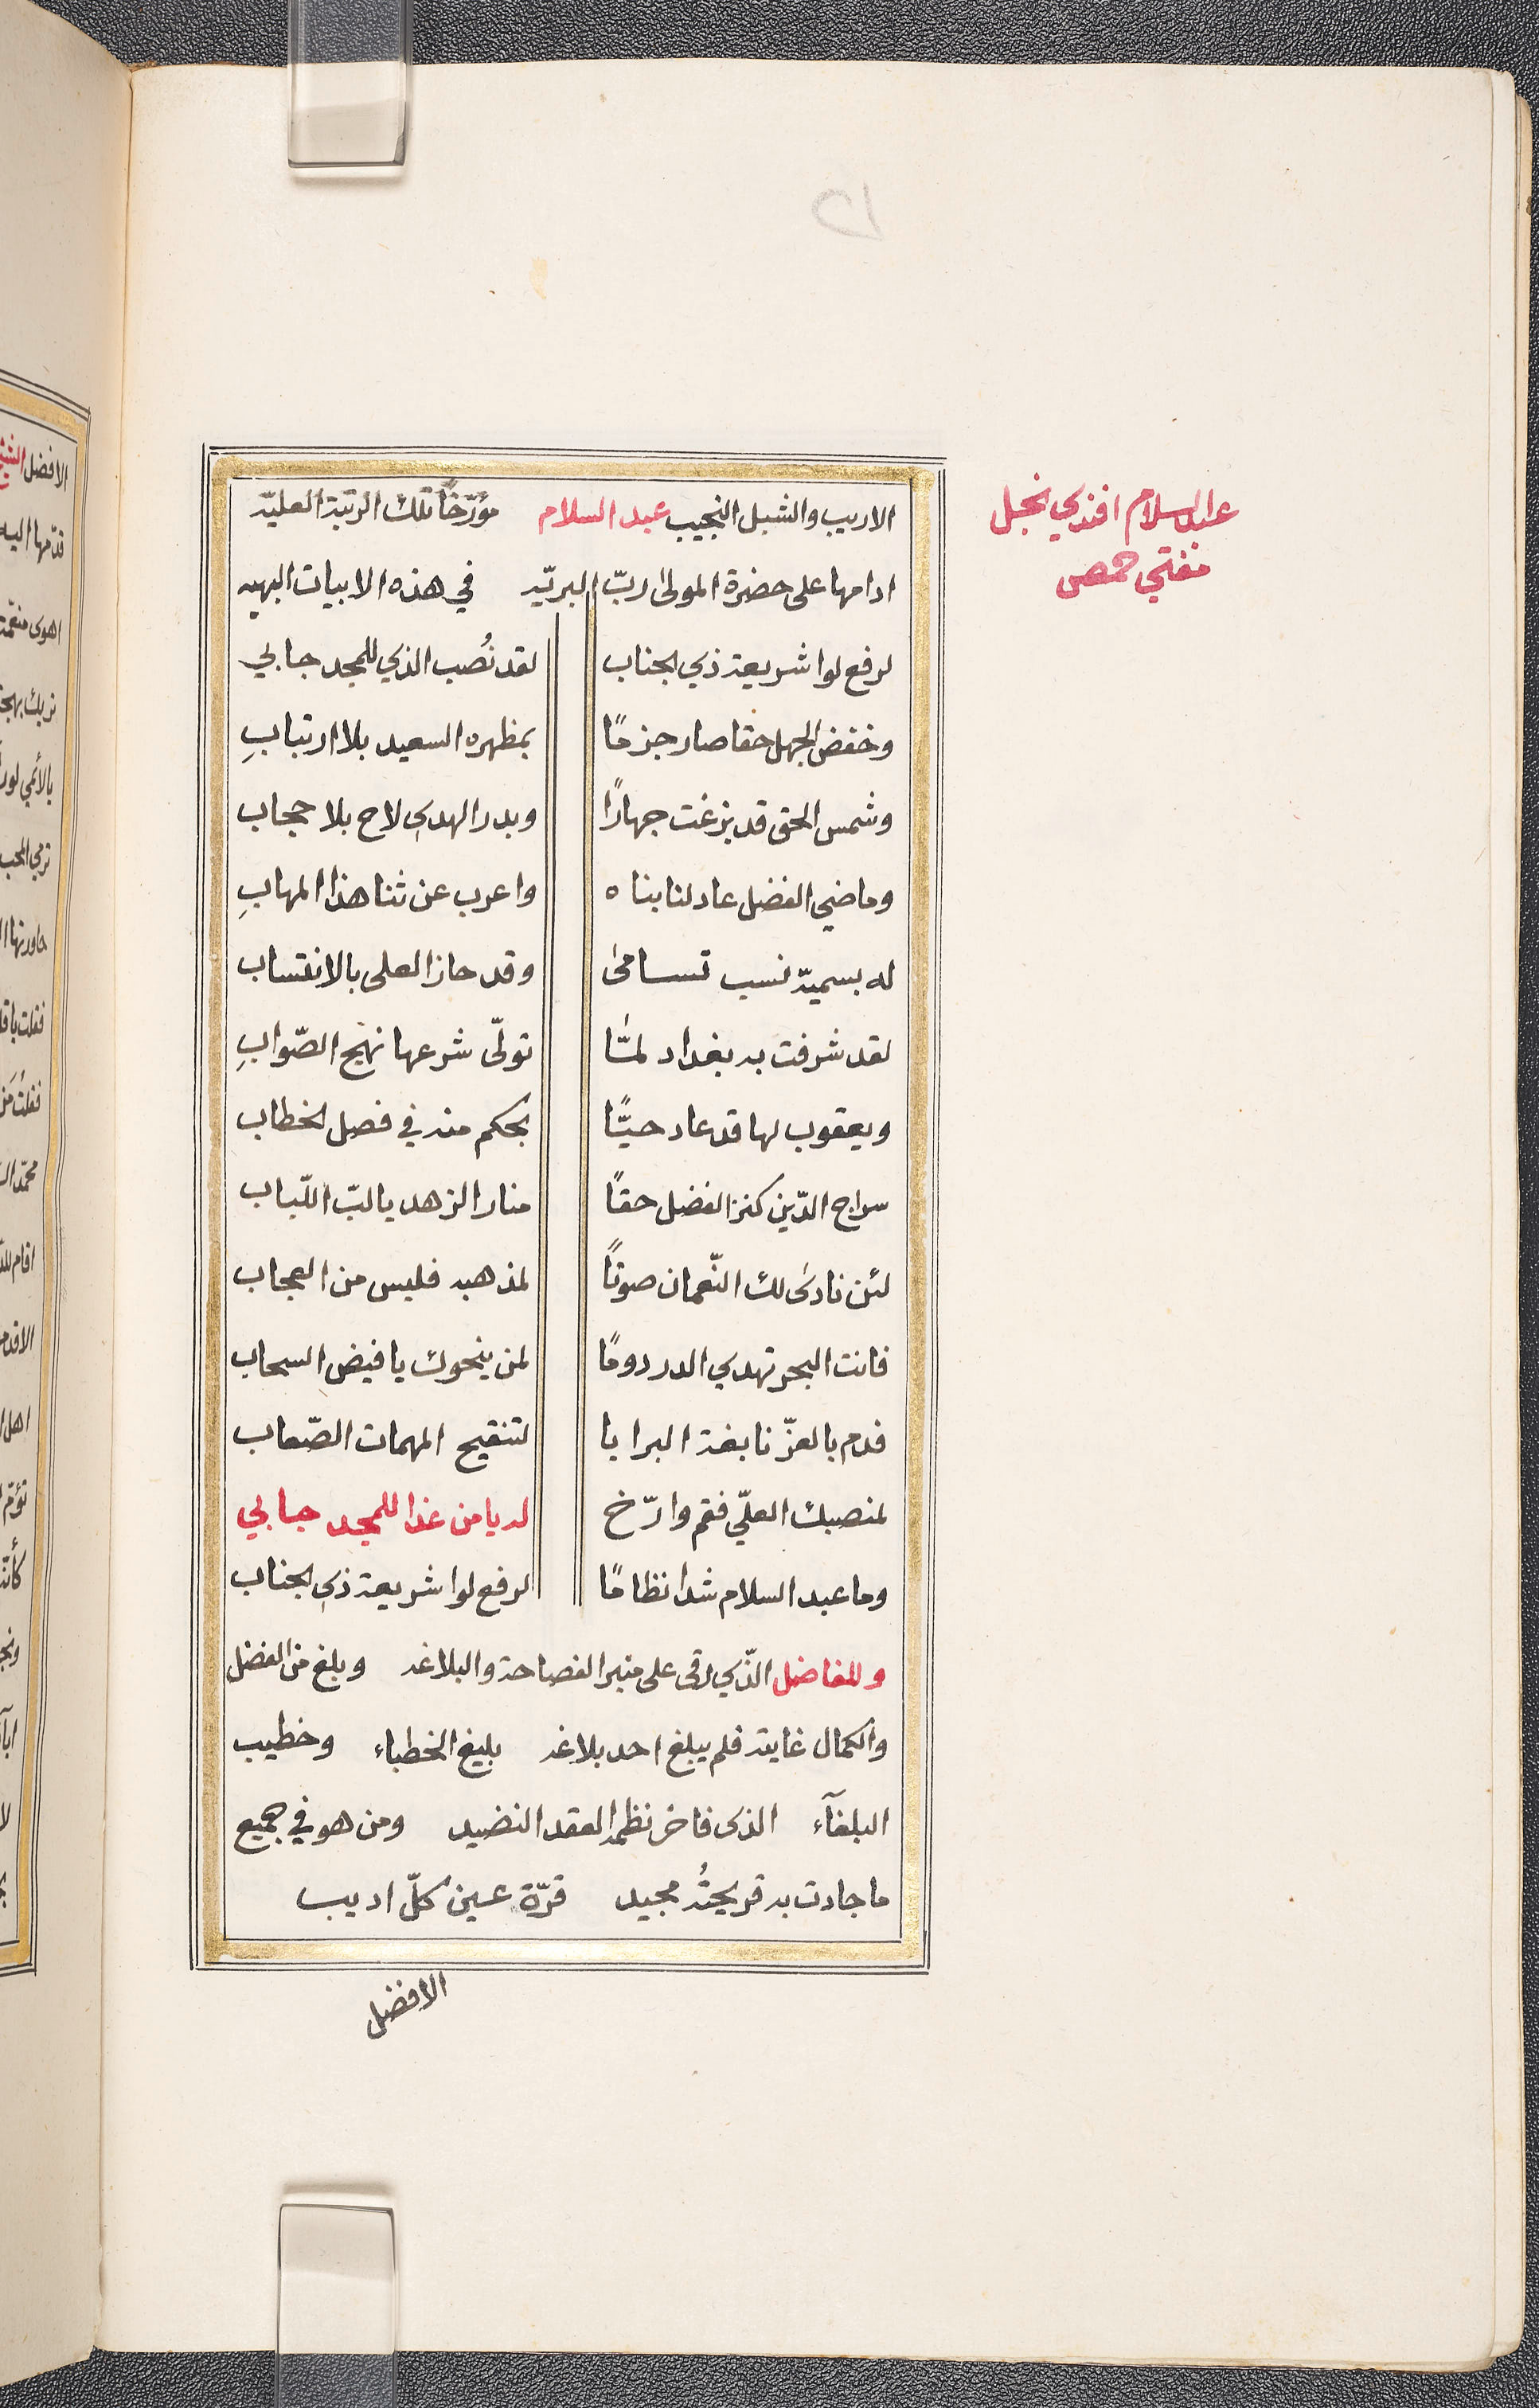 ١٥
عبد السلام افندي نجل
مفتي حمص
الاريب والشبل النجيب عبد السلام مؤرّخاً تلك الرتبة العليّه
ادامها على حضرة المولى ربّ البريّه في هذه الابيات البهيه
لرفع لوا شريعة ذي الجناب لقد نُصب الذي للمجد جابي
وخفض الجهل حقا صار جزمًا بمظهره السعيد بلا ارتيابِ
وشمس الحق قد بزغت جهارًا وبدر الهدى لاح بلا حجاب
وماضي الفضل عاد لنا بناه واعرب عن ثنا هذا المهابِ
له بسميّه نسب تسامى وقد حاز العلى بالانتساب
لقد شرفت به بغداد لمّا تولّى شرعها نهج الصّوابِ
ويعقوب لها قد عاد حيًّا بحكم منه في فصل الخطاب
سراج الدّين كنز الفضل حقاً منار الزهد يا لبّ اللّباب
لئن نادى لك النّعمان صوتاً لمذهبه فليس من العجاب
فانت البحر تهدي الدر دومًا لمن ينحوك يا فيض السحاب
فدم بالعزّ نابغة البرايا لتنقيح المهمات الصّعاب
لمنصبك العلّي فقم وارّخ له يا من غدا للمجد جابي
وما عبد السلام شدا نظامًا لرفع لوا شريعة ذي الجناب
وللفاضل الذّي رقى على منبر الفصاحة والبلاغه وبلغ من الفضل
والكمال غاية فلم يبلغ احد بلاغه بليغ الخطباء وخطيب
البلغآء الذى فاخر نظمه العقد النضيد ومن هو في جميع
ما جادت به قريحتُه مجيد قرّة عين كلّ اديب
الافضل